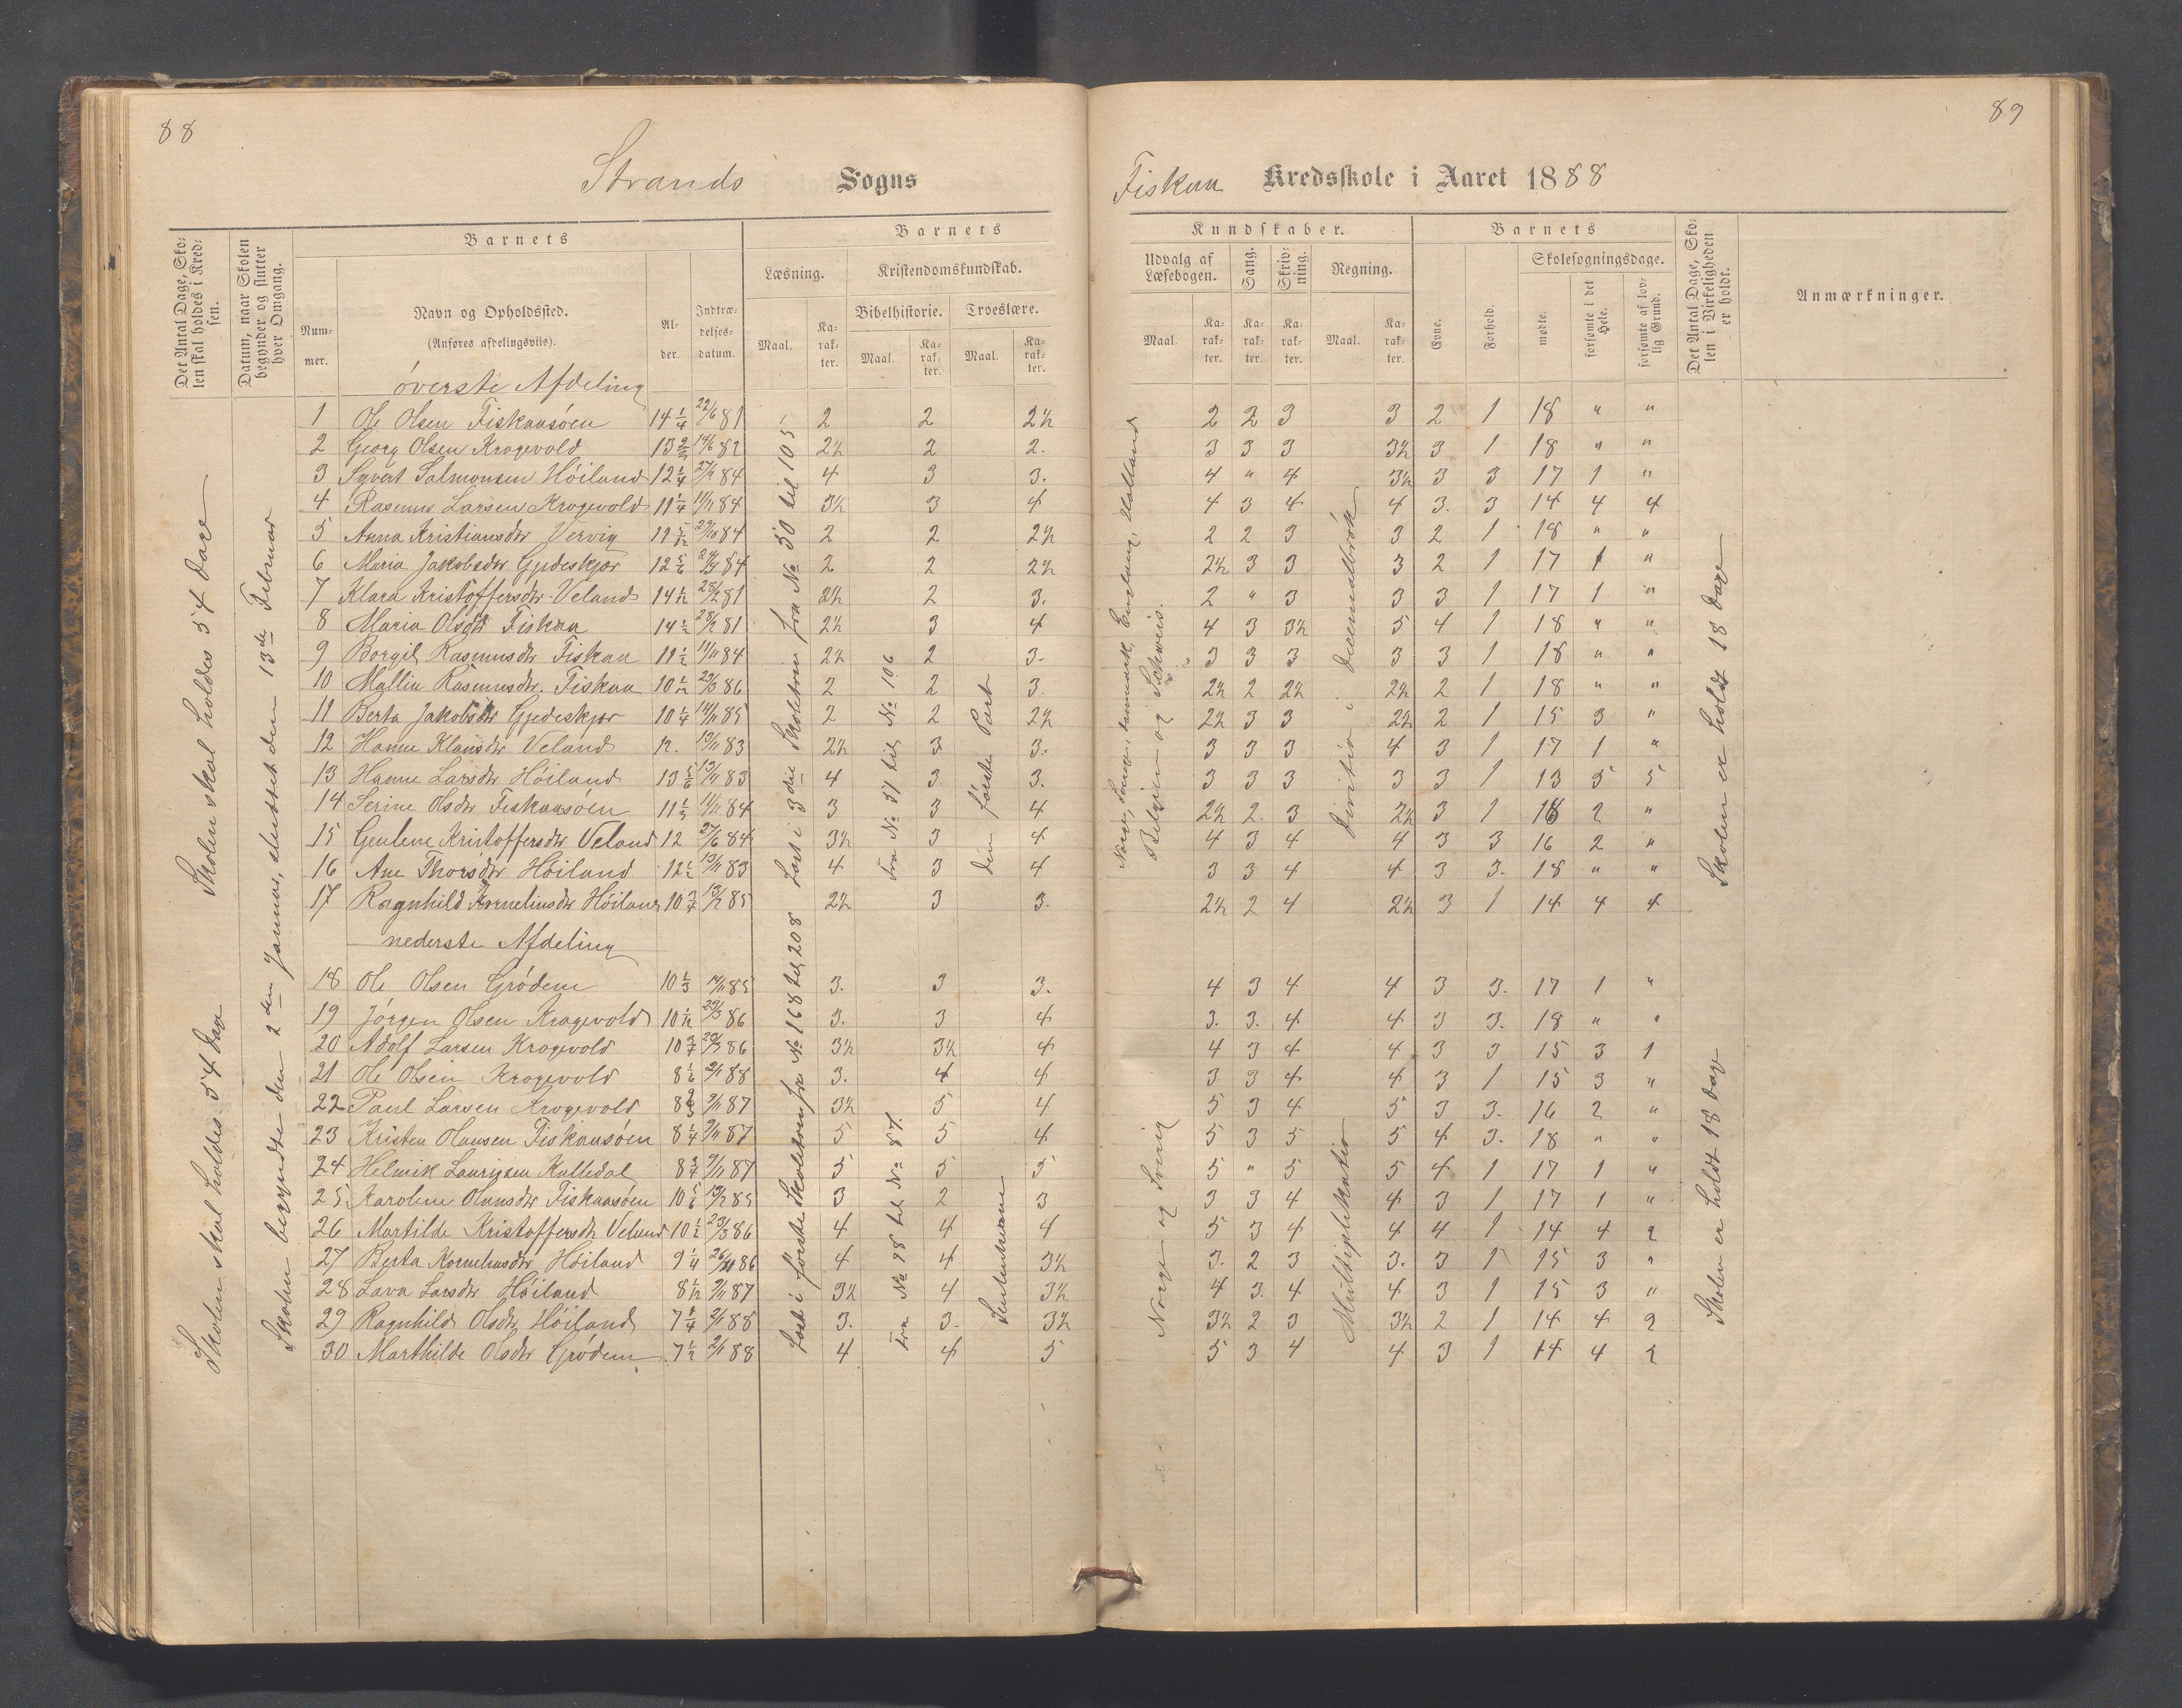 88
Strands Sogns
Det Antal Dage, Skolen skal holdes i Kredsen.
Datum, naar Skolen begynder og slutter hver Omgang.
Barnets
Nummer.
Navn og Opholdssted.
(Anføres afdelingsviis).
Alder.
Indtrædelsesdatum.
Barnets
Læsning.
Maal.
Karakter.
Kristendomskundskab.
Bibelhistorie.
Maal.
Karakter.
Troeslære.
Maal.
Karakter.
øverste Afdeling
1 Ole Olsen Fiskaasøen 14 1/4 22/6 81 2 2 2½
2 Georg Olsen Krogevold 13 2/3 14/6 82 2½ 2 2.
3 Syvert Salmonsen Høiland 12 1/4 84 4 3 3.
4 Rasmus Larsen Krogevold 11 1/4 11/11 84 3½ 3 4
5 Anna Kristiansdtr Vervig 84 2 2 2½
6 Maria Jakobsdtr Gjedeskjær 12 5/6 84 2 2 2½
7 Klara Kristoffersdtr Veland 81 2½ 2 3.
8 Maria Olsdtr Fiskaa 81 2½ 3 4
9 Borgil Rasmusdtr Fiskaa 11 1/2 11/11 84 2½ 2 3.
10 Mallin Rasmusdtr. Fiskaa 29/3 86 2 2 3.
11 Berta Jakobsdtr Gjedeskjær 10 1/4 14/11 85 2 2 2½
12 Hanne Klausdtr Veland 12. 13/11 83 2½ 3 3.
13 Hanne Larsdtr Høiland 13 5/6 13/11 83 4 3 3.
14 Serine Olsdtr Fiskaasøen 84 3 3 4
15 Kristoffersdtr Veland 12 27/6 84 3½ 3 4
16 Ane Thorsdtr Høiland 12 1/2 13/11 83 4 3 4
17 Ragnhild Kornelinsdtr Høiland 10 3/4 85 2½ 3 3.
nederste Afdeling
18 Ole Olsen Grødem 10 1/3 14/11 85 3. 3 3.
19 Jørgen Olsen Krogevold 29/3 86 3. 3 4
20 Adolf Larsen Krogevold 29/3 86 3½ 3½ 4
21 Ole Olsen Krogevold 8 1/6 2/1 88 3. 4 4
22 Paul Larsen Krogevold 8 2/3 9/11 87 3½ 5 4
23 Kristen Olausen Fiskaasøen 8 1/4 9/11 87 5 5 4
24 Helmik Kulledal 8 3/4 9/11 87 5 5 5
25 Karoline Olausdtr Fiskaasøen 10 5/6 85 3 2 3
26 Martilde Kristoffersdtr Veland 10 1/2 29/3 86 4 4 4
27 Berta Kornelinsdtr Høiland 9 1/4 86 4 4 3½
28 Lava Larsdtr Høiland 9/11 87 3½ 4 3½
29 Ragnhild Olsdtr Høiland 7 1/4 2/1 88 3. 3. 3½
30 Marthilde Olsdtr Grødem 7 1/2 2/1 88 4 4 5
Skolen skal holdes 54 Dage
Skolen skal holdes 54 Dage
Skolen begyndte den 2den Januar, sluttet den 13de Februar
Læst i 3die Skoletrin fra No 30 til 105
Læst i første Skoletrin fra No 168 til 208
Fra No 57 til No 106
Fra No 28 til No 57.
Den første Part
89
Fiskaa Kredsskole i Aaret 1888
Kundskaber.
Udvalg af Læsebogen.
Maal.
Karakter.
Sang.
Karakter.
Skrivning.
Karakter.
Regning.
Maal.
Karakter.
Barnets
Evne.
Forhold.
Skolesøgningsdage.
mødte.
forsømte i det Hele.
forsømte af lovlig Grund.
Det Antal Dage, Skolen i Virkeligheden er holdt.
Anmærkninger.
2 2 3 3 2 1 18 " "
3 3 3 3½ 3 1 18 " "
4 " 4 3½ 3 3 17 1 "
4 3 4 4 3. 3 14 4 4
2 2 3 3 2 1 18 " "
2½ 3 3 3 2 1 17 1 "
2 " 3 3 3 1 17 1 "
4 3 3½ 5 4 1 18 " "
3 3 3 3 3 1 18 " "
2½ 2 2½ 2½ 2 1 18 " "
2½ 3 3 2½ 2 1 15 3 "
3 3 3 4 3 1 17 1 "
3 3 3 3 3 1 13 5 5
2½ 2. 3 2½ 3 1 16 2 "
4 3 4 4 3 3 16 2 "
3 3 4 4 3 3. 18 " "
2½ 2 4 2½ 3 1 14 4 4
4 3 4 4 3 3. 17 1 "
3. 3. 4 4 3 3. 18 " "
4 3 4 4 3 3 15 3 1
3 3 4 4 3 1 15 3 "
5 3 4 5 3 3. 16 2 "
5 3 5 5 4 3. 18 " "
5 " 5 5 4 1 17 1 "
3 3 4 4 3 1 17 1 "
5 3 4 4 4 1 14 4 2
3. 2 3 3. 3 1 15 3 "
4 3. 4 4 3 1 15 3 "
3½ 2 3 3½ 2 1 14 4 2
5 3 4 4 3 1 14 4 2
Norge, Sverige, Danmark, England, Holland
Belgien og Schweis.
Norge og Sverig
Division i Decimalbrøk
Multiplikation
Skolen er holdt 18 Dage
Skolen er holdt 18 Dage